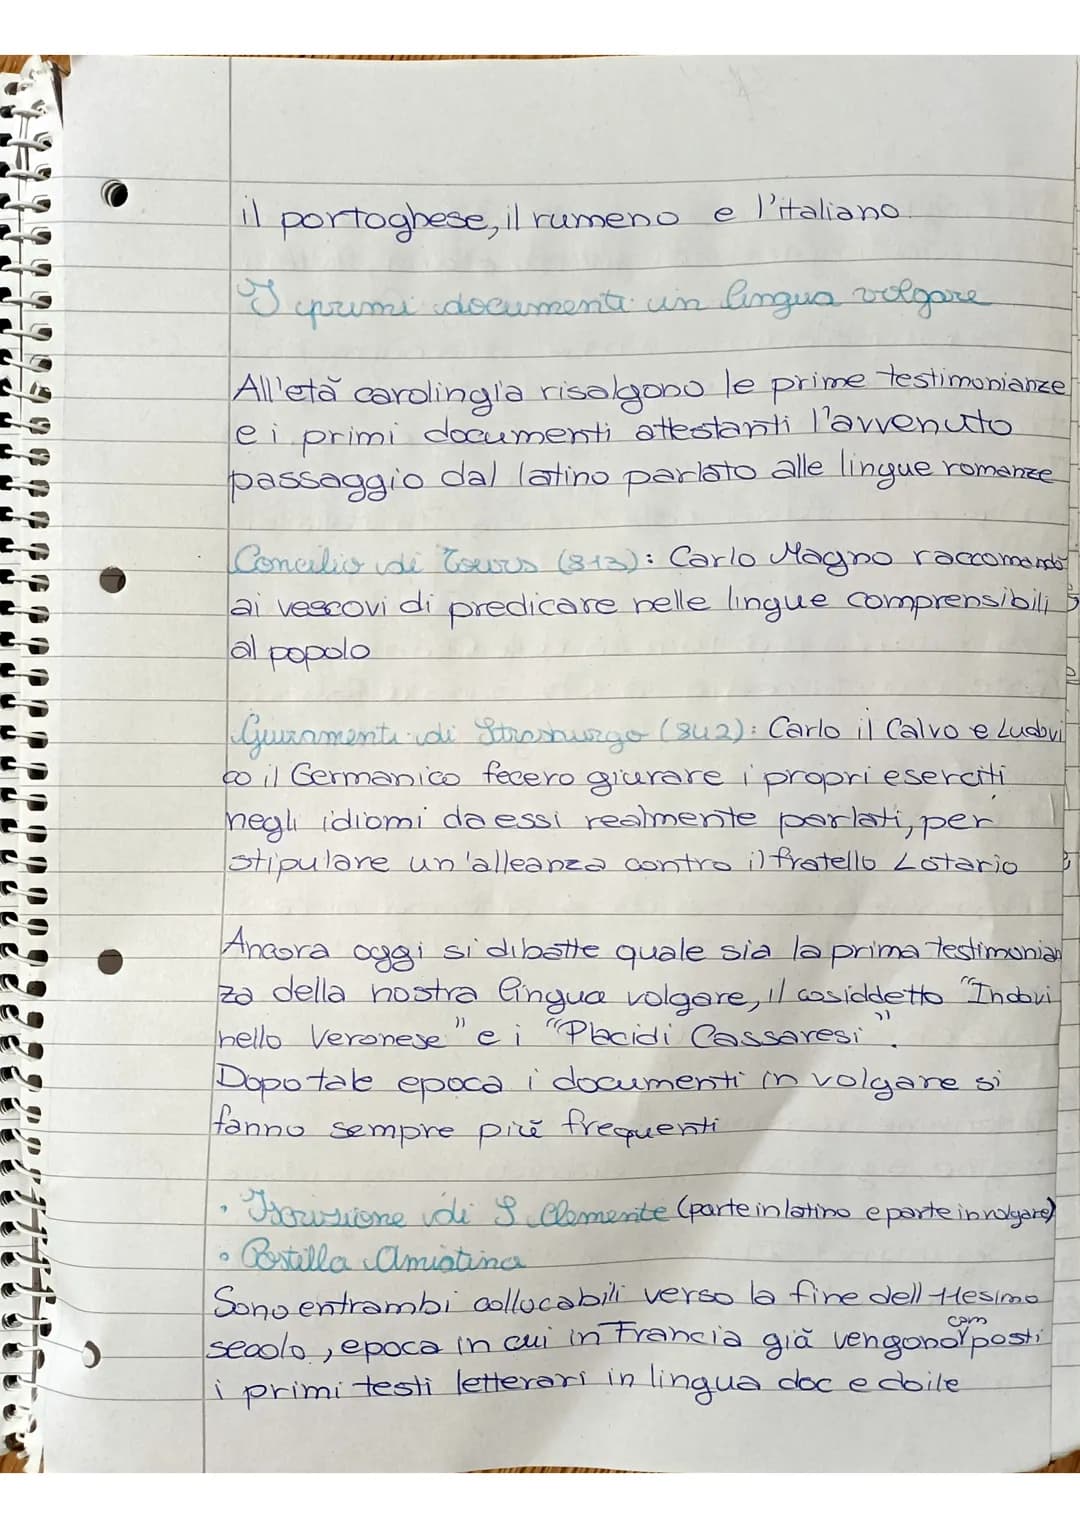 il portoghese, il rumeno e l'italiano.
I primi documenti in lingua volgare
All'età carolingia risalgono le prime testimonianze
e i primi documenti attestanti l'avvenuto
passaggio dal latino parlato alle lingue romanze
Concilio di Tours (813): Carlo Magno raccomandò
ai vescovi di predicare nelle lingue comprensibili
al popolo
Giuramenti di Strasburgo (842): Carlo il Calvo e Ludovi
co il Germanico fecero giurare i propri eserciti
negli idiomi da essi realmente parlati, per
stipulare un'alleanza contro il fratello Lotario
Ancora oggi si dibatte quale sia la prima testimonian
za della nostra lingua volgare, il cosiddetto "Indovi
nello Veronese" e i "Placidi Cassaresi".
Dopo tale epoca i documenti in volgare si
fanno sempre più frequenti
• Iscrizione di S. Clemente (parte in latino e parte in volgare)
• Postilla Amiatina
Sono entrambi collocabili verso la fine dell' Hesimo
secolo, epoca in cui in Francia già vengono composti
i primi testi letterari in lingua doc e doile